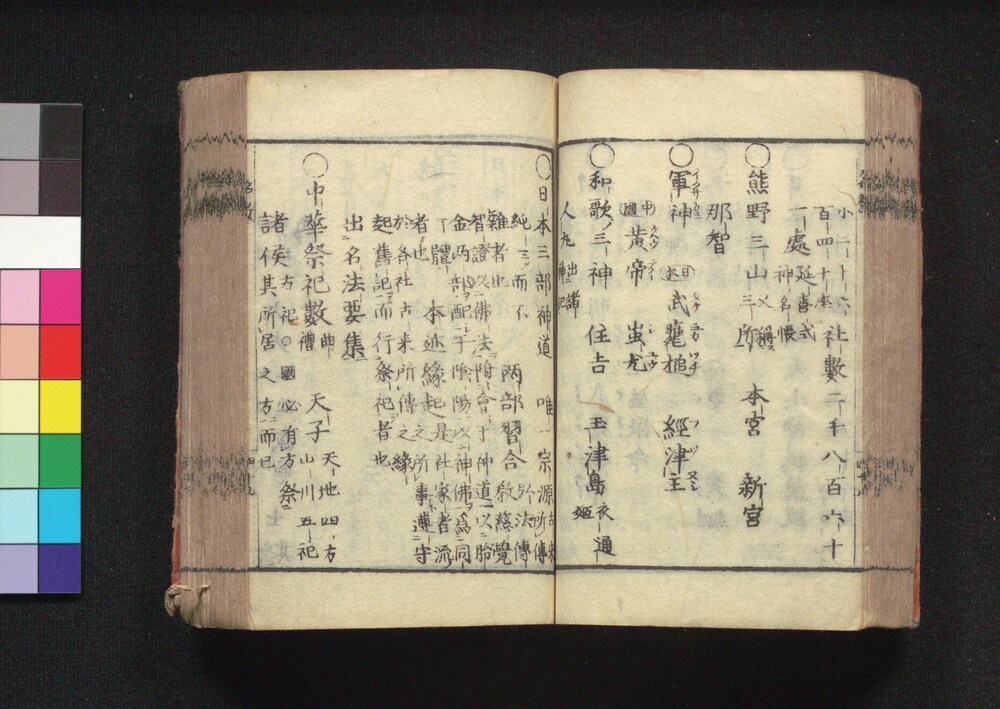 社數二千八百六十
百四十座
一處 延喜式
神名帳
○熊野三山 又稱
三所 本宮 新宮
那智
○軍神 日本 武甕槌 經津主
中國 黃帝 蚩尤
○和歌三神 住吉 玉津島 衣通
姬
人丸 出諸
神記
○日本三部神道 唯一宗源
純一而不
雜者也 兩部習合
智證以佛法附會于神道以胎
金兩部配于陰陽以神佛爲同
一體 本迹緣起是社家者流
者也
於各社古來所傳之緣
起舊記而行祭祀者也
出名法要集
○中華祭祀數 曲
禮 天子 天地 四方
山川 五祀
諸侯 方祀○國必有方祭
其所居之方而已